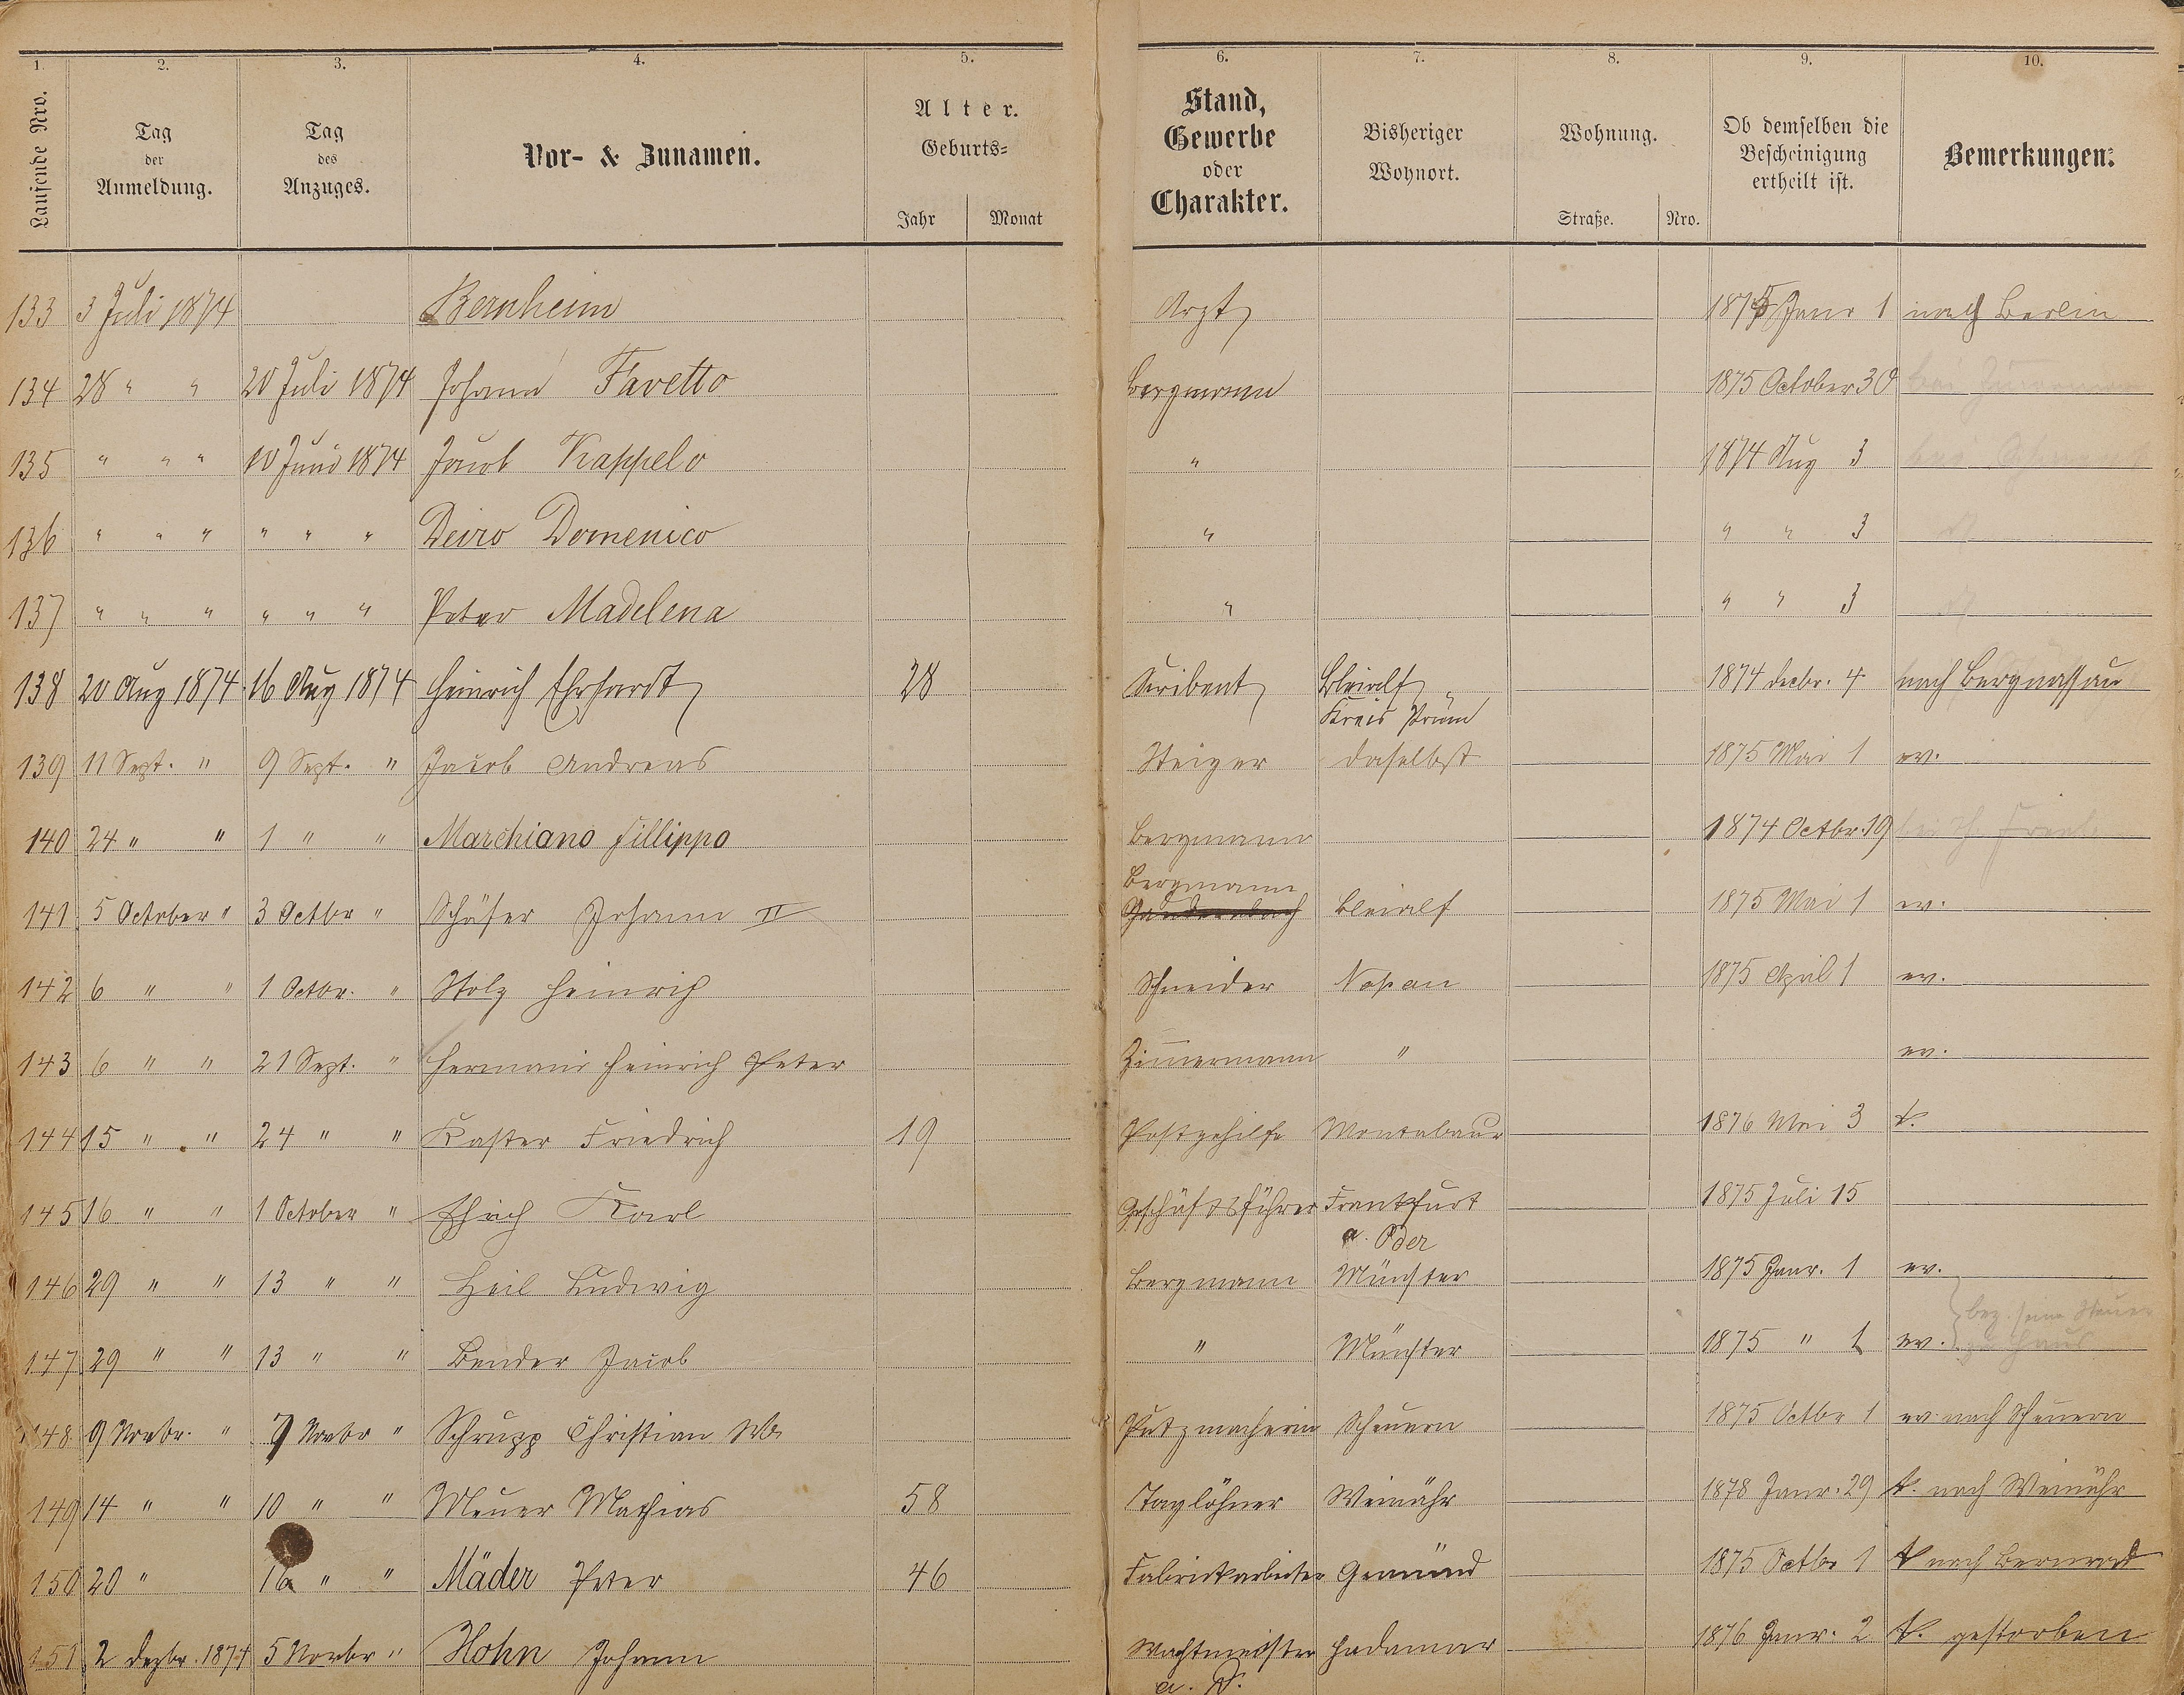 1. 2. 3. 4. 5. 6. 7. 8. 9. 10.
Laufende Nro. Tag der Anmeldung. Tag des Anzuges. Vor- & Zunamen. Alter. Geburts= Jahr Monat Stand, Gewerbe oder Charakter. Bisheriger Wohnort. Wohnung. Straße. Nro. Ob demselben die Bescheinigung ertheilt ist. Bemerkungen.
133 3 Juli 1874 Bernheim Arzt 1875 Janr 1 nach Berlin
134 28 " " 20 Juli 1874 Johann Favetto Bergmann 1875 October 30 bei
135 " " " 10 Juni 1874 Jacob Kappelo " 1874 Aug 3 bei
136 " " " " " " Deiro Domenico " " " 3
137 " " " " " " Peter Madelena " " " 3
138 20 Aug 1874 16 Aug 1874 Heinrich Ehrhardt 28 Scribent Bleialf 1874 Decbr. 4 nach Bergnassau
Kreis Prüm
139 11 Sept. " 9 Sept. " Jacob Andreas Steiger daselbst 1875 Mai 1 ev.
140 24 " " 1 " " Marchiano Fillippo Bergmann 1874 Octbr. 19 bei
Bergmann
141 5 October " 3 Octbr " Schäfer Johann II Bleialf 1875 Mai 1 ev.
142 6 " " 1 Octbr. " Stolz Heinrich Schneider Naßau 1875 April 1 ev.
143 6 " " 21 Sept. " Hermani Heinrich Peter Zimmermann " ev.
144 15 " " 24 " " Kaster Friedrich 19 Postgehilfe Montabaur 1876 Mai 3 k.
145 16 " " 1 October " Karl Geschäftsführer Frankfurt 1875 Juli 15
a. Oder
146 29 " " 13 " " Heil Ludwig Bergmann Münster 1875 Janr. 1 ev.
bez. seine Steuer
147 29 " " 13 " " Bender Jacob " Münster 1875 " 1 ev. zu Haus
148 9 Novbr. " 7 Novbr " Schrupp Christian Putzmacherin Scheuern 1875 Octbr 1 ev. nach Scheuern
149 14 " " 10 " " Meuer Mathias 58 Taglöhner Weinähr 1878 Janr. 29 k. nach Weinähr
150 20 " 16 " " Mäder Peter 46 Fabrikarbeiter Gemünd 1875 Octbr 1 k nach
151 2 Dezbr. 1874 5 Novbr " Hohn Johann Wachtmeister Hadamar 1876 Janr. 2 k. gestorben
a. D.